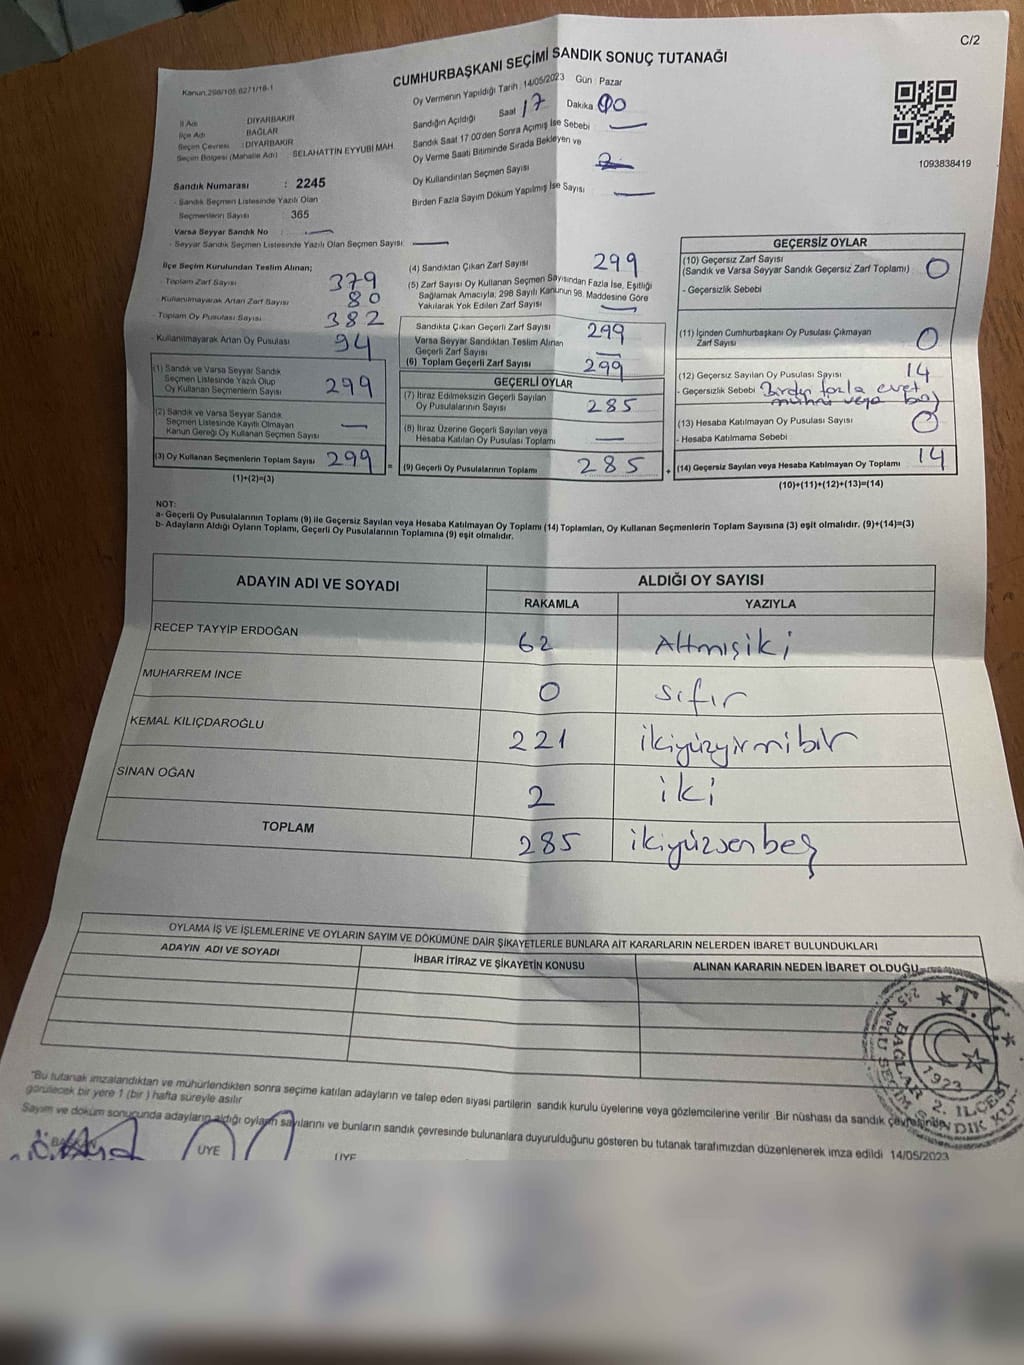 C/2
CUMHURBAŞKANI SEÇİMİ SANDIK SONUÇ TUTANAĞI
Kanun:298/105 6271/18-1
Oy Vermenin Yapıldığı Tarih : 14/05/2023 Gün : Pazar
İl Adı : DİYARBAKIR
İlçe Adı : BAĞLAR
Seçim Çevresi : DİYARBAKIR
Seçim Bölgesi (Mahalle Adı) : SELAHATTİN EYYUBİ MAH.
Sandık Numarası : 2245
- Sandık Seçmen Listesinde Yazılı Olan
Seçmenlerin Sayısı : 365
Varsa Seyyar Sandık No : —
- Seyyar Sandık Seçmen Listesinde Yazılı Olan Seçmen Sayısı: —
Sandığın Açıldığı Saat 17 Dakika 00
Sandık Saat 17:00'den Sonra Açılmış İse Sebebi —
Oy Verme Saati Bitiminde Sırada Bekleyen ve
Oy Kullandırılan Seçmen Sayısı
Birden Fazla Sayım Döküm Yapılmış İse Sayısı —
1093838419
İlçe Seçim Kurulundan Teslim Alınan;
- Toplam Zarf Sayısı 379
- Kullanılmayarak Artan Zarf Sayısı 80
- Toplam Oy Pusulası Sayısı 382
- Kullanılmayarak Artan Oy Pusulası 94
(1) Sandık ve Varsa Seyyar Sandık
Seçmen Listesinde Yazılı Olup
Oy Kullanan Seçmenlerin Sayısı 299
(2) Sandık ve Varsa Seyyar Sandık
Seçmen Listesinde Kayıtlı Olmayan
Kanun Gereği Oy Kullanan Seçmen Sayısı —
(3) Oy Kullanan Seçmenlerin Toplam Sayısı 299
(1)+(2)=(3)
(4) Sandıktan Çıkan Zarf Sayısı 299
(5) Zarf Sayısı Oy Kullanan Seçmen Sayısından Fazla İse, Eşitliği
Sağlamak Amacıyla, 298 Sayılı Kanunun 98. Maddesine Göre
Yakılarak Yok Edilen Zarf Sayısı —
Sandıkta Çıkan Geçerli Zarf Sayısı 299
Varsa Seyyar Sandıktan Teslim Alınan
Geçerli Zarf Sayısı —
(6) Toplam Geçerli Zarf Sayısı 299
GEÇERLİ OYLAR
(7) İtiraz Edilmeksizin Geçerli Sayılan
Oy Pusulalarının Sayısı 285
(8) İtiraz Üzerine Geçerli Sayılan veya
Hesaba Katılan Oy Pusulası Toplamı —
= (9) Geçerli Oy Pusulalarının Toplamı 285
GEÇERSİZ OYLAR
(10) Geçersiz Zarf Sayısı
(Sandık ve Varsa Seyyar Sandık Geçersiz Zarf Toplamı) 0
- Geçersizlik Sebebi
(11) İçinden Cumhurbaşkanı Oy Pusulası Çıkmayan
Zarf Sayısı 0
(12) Geçersiz Sayılan Oy Pusulası Sayısı 14
- Geçersizlik Sebebi Birden fazla evet
mührü veya boş
(13) Hesaba Katılmayan Oy Pusulası Sayısı 0
- Hesaba Katılmama Sebebi
+ (14) Geçersiz Sayılan veya Hesaba Katılmayan Oy Toplamı 14
(10)+(11)+(12)+(13)=(14)
NOT:
a- Geçerli Oy Pusulalarının Toplamı (9) ile Geçersiz Sayılan veya Hesaba Katılmayan Oy Toplamı (14) Toplamları, Oy Kullanan Seçmenlerin Toplam Sayısına (3) eşit olmalıdır. (9)+(14)=(3)
b- Adayların Aldığı Oyların Toplamı, Geçerli Oy Pusulalarının Toplamına (9) eşit olmalıdır.
ADAYIN ADI VE SOYADI
ALDIĞI OY SAYISI
RAKAMLA YAZIYLA
RECEP TAYYİP ERDOĞAN 62 Altmışiki
MUHARREM İNCE 0 sıfır
KEMAL KILIÇDAROĞLU 221 ikiyüzyirmibir
SİNAN OĞAN 2 iki
TOPLAM 285 ikiyüzsenbeş
OYLAMA İŞ VE İŞLEMLERİNE VE OYLARIN SAYIM VE DÖKÜMÜNE DAİR ŞİKAYETLERLE BUNLARA AİT KARARLARIN NELERDEN İBARET BULUNDUKLARI
ADAYIN ADI VE SOYADI İHBAR İTİRAZ VE ŞİKAYETİN KONUSU ALINAN KARARIN NEDEN İBARET OLDUĞU
"Bu tutanak imzalandıktan ve mühürlendikten sonra seçime katılan adayların ve talep eden siyasi partilerin sandık kurulu üyelerine veya gözlemcilerine verilir. Bir nüshası da sandık çevresinde
görülecek bir yere 1 (bir ) hafta süreyle asılır
Sayım ve döküm sonucunda adayların aldığı oyların sayılarını ve bunların sandık çevresinde bulunanlara duyurulduğunu gösteren bu tutanak tarafımızdan düzenlenerek imza edildi 14/05/2023
T.C.
BAĞLAR 2. İLÇESİ
1923
BAŞKAN
ÜYE
ÜYE